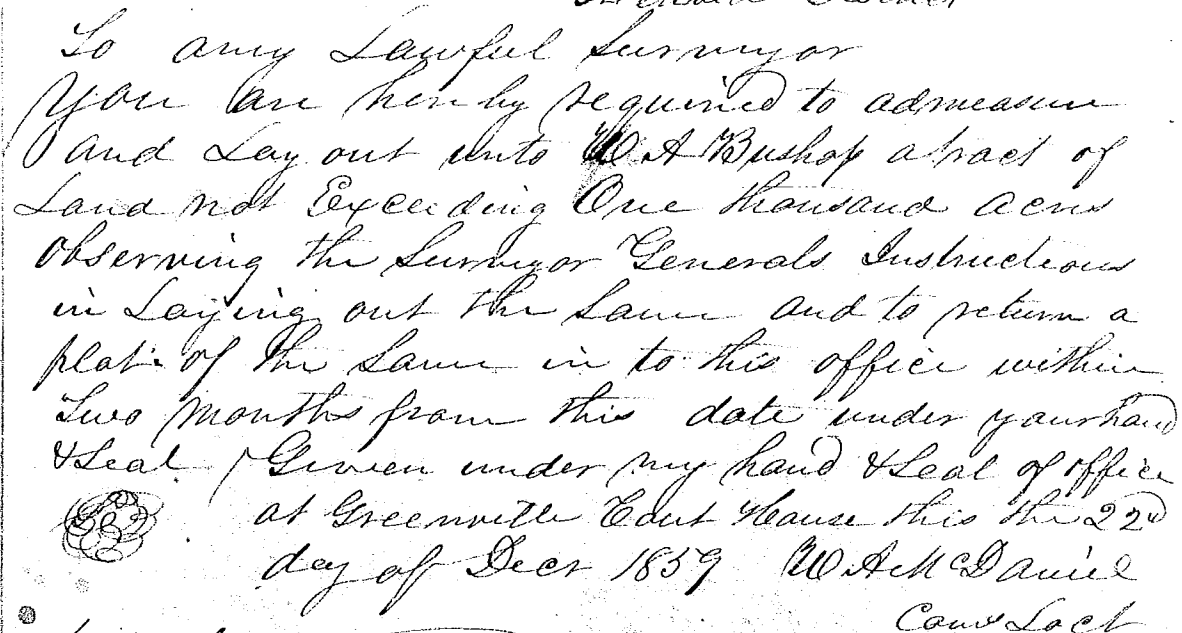 To any Lawful Surveyor
You are hereby required to admeasure
and Lay out unto W A Bishop a tract of
Land not Exceeding One thousand acres
observing the Surveyor Generals Instructions
in Laying out the Same and to return a
plat of the Same in to this office within
Two Months from this date under your hand
& Seal Given under my hand & Seal of office
at Greenville Court House this the 22d
day of Decr 1859 W A McDaniel